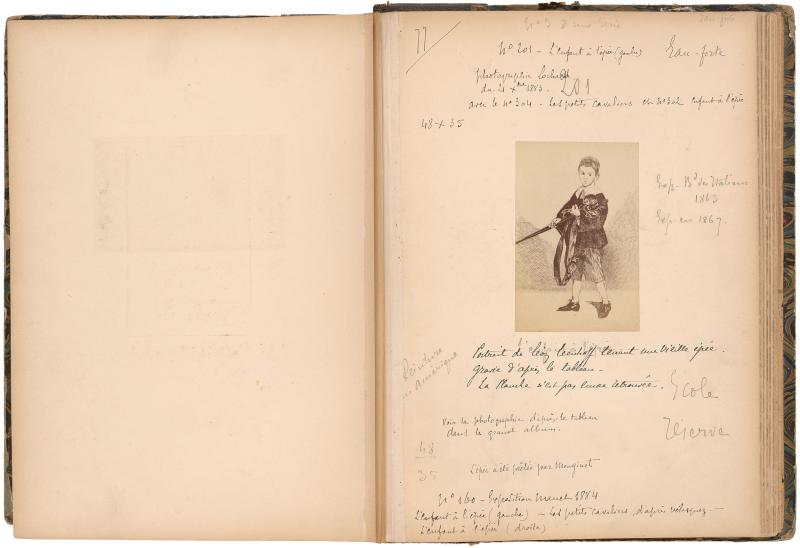 77
N° 3 d'une série
Eau-forte
N° 201 - L'enfant à l'épée (gauche)
Eau-forte
photographie Lochard
du 21 Xbre 1883.
201
avec le N° 304 - Les petits cavaliers en N° 302 enfant à l'épée
48 x 35
Exp. Bd des Italiens
1863
Exp en 1867.
Portrait de Léon Leenhoff tenant une vieille épée.
gravée d'après le tableau -
La planche n'est pas encore retrouvée.
Peinture
en Amérique
École
Voir la photographie d'après le tableau
dans le grand album.
réserve
48
35
L'épée a été prêtée par Monginot
N° 160 - Exposition Manet 1884
L'enfant à l'épée (gauche) - Les petits cavaliers, d'après Velasquez -
L'enfant à l'épée (droite)